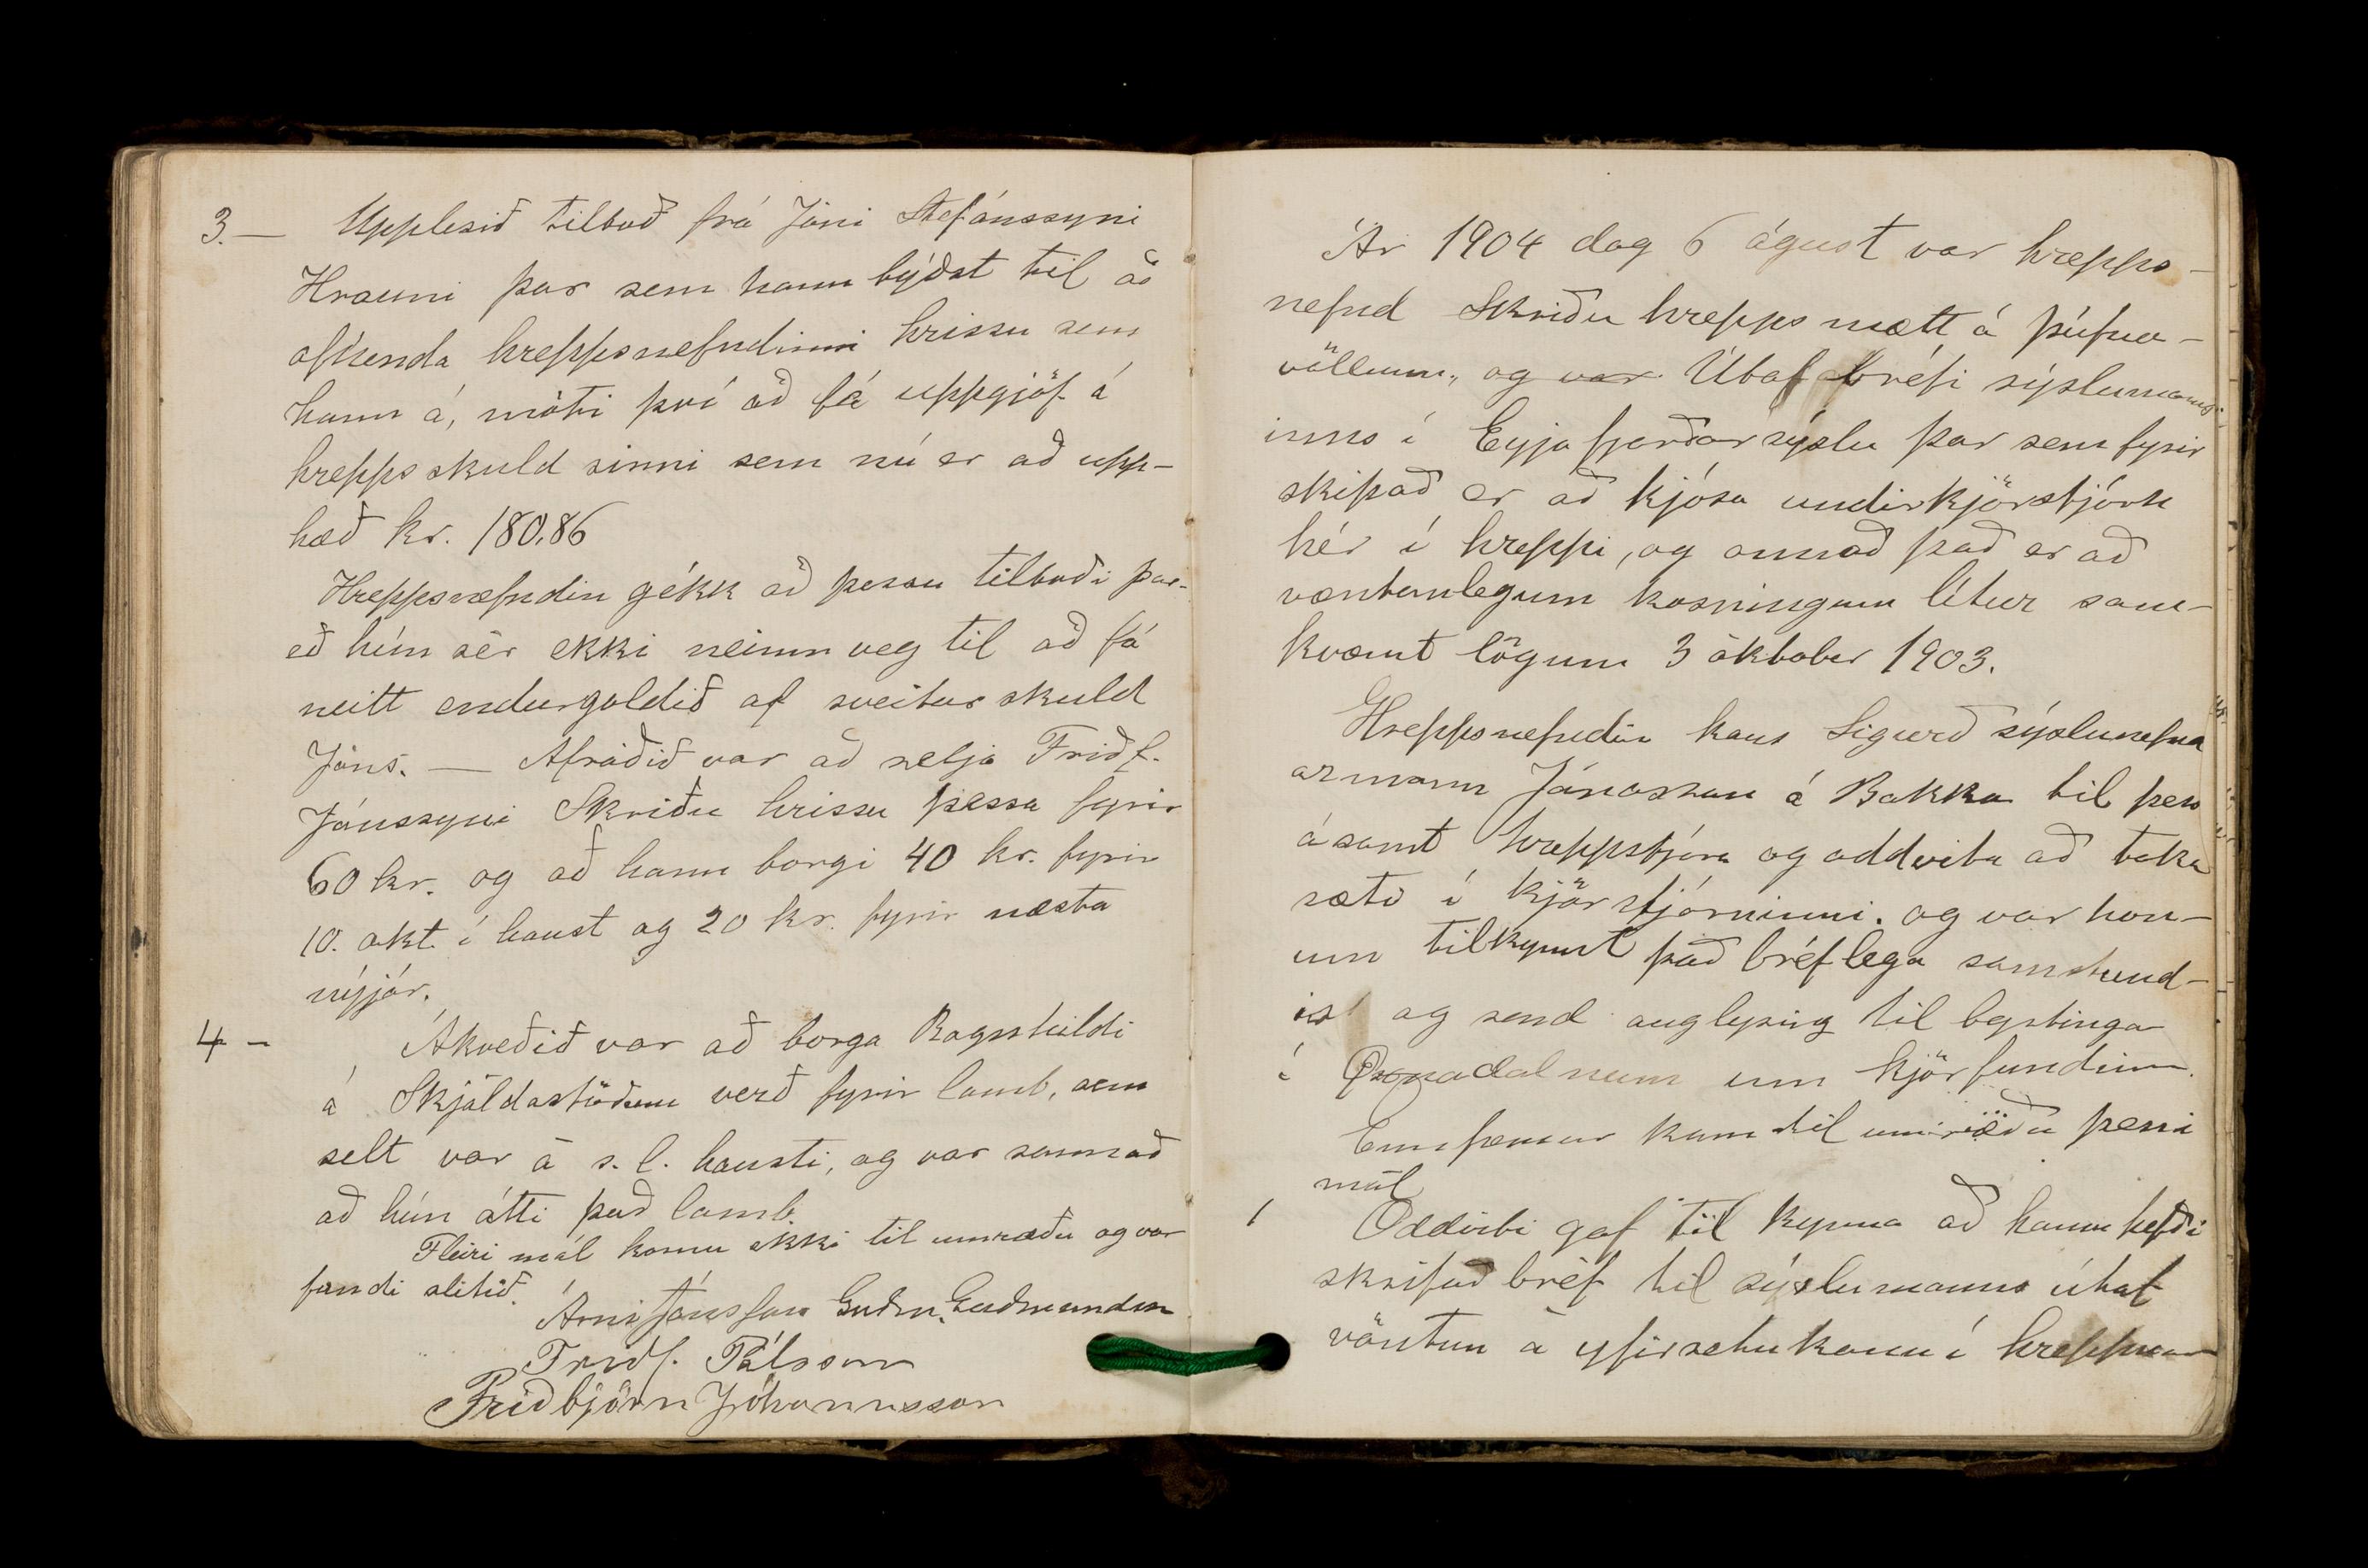 3. — Upplesið tilboð frá Jóni Stefánssyni
Hrauni þar sem hann býðst til að
afhenda hreppsnefndinni hrissu sem
hann á, móti því að fá uppgjöf á
hreppsskuld sinni sem nú er að upp-
hæð kr. 180,86
Hreppsnefndin gékk að þessu tilboði þar-
eð hún sér ekki neinn veg til að fá
neitt endurgoldið af sveitarskuld
Jóns. — Afráðið var að selja Friðf.
Jónssyni Skriðu hrissu þessa fyrir
60 kr. og að hann borgi 40 kr. fyrir
10. okt. í haust og 20 kr. fyrir næsta
nýjár.
4 - Ákveðið var að borga Ragnhildi
á Skjáldastöðum verð fyrir lamb, sem
selt var á s.l. hausti, og var sannað
að hún átti það lamb.
Fleiri mál komu ekki til umræðu og var
fundi slitið.
Árni Jónsson Guðm. Guðmundsson
Friðf. Pálsson
Friðbjörn Jóhannsson
Ár 1904 dag 6 águst var hrepps-
nefnd Skriðuhrepps mætt á Þúfna-
völlum, og var Útaf bréfi sýslumanns-
inns í Eyjafjarðarsýslu þar sem fyrir
skipað er að kjósa undirkjörstjórn
hér í hreppi, og annað það er að
væntanlegum kosningum lítur sam-
kvæmt lögum 3 óktober 1903.
Hreppsnefndin kaus Sigurð sýslunefnd
armann Jónasson á Bakka til þess
ásamt hreppstjóra og oddvita að taka
sæti í kjörstjórninni. og var hon-
um tilkynnt það bréflega samstund-
is og send auglysing til byrtingar
í Öxnadalnum um kjörfundinn.
Ennfremur kom til umræðu þessi
mál
1 Oddviti gaf til kynna að hann hefði
skrifað bréf til sýslumanns útaf
vöntun á yfirsetukonu í hreppnum